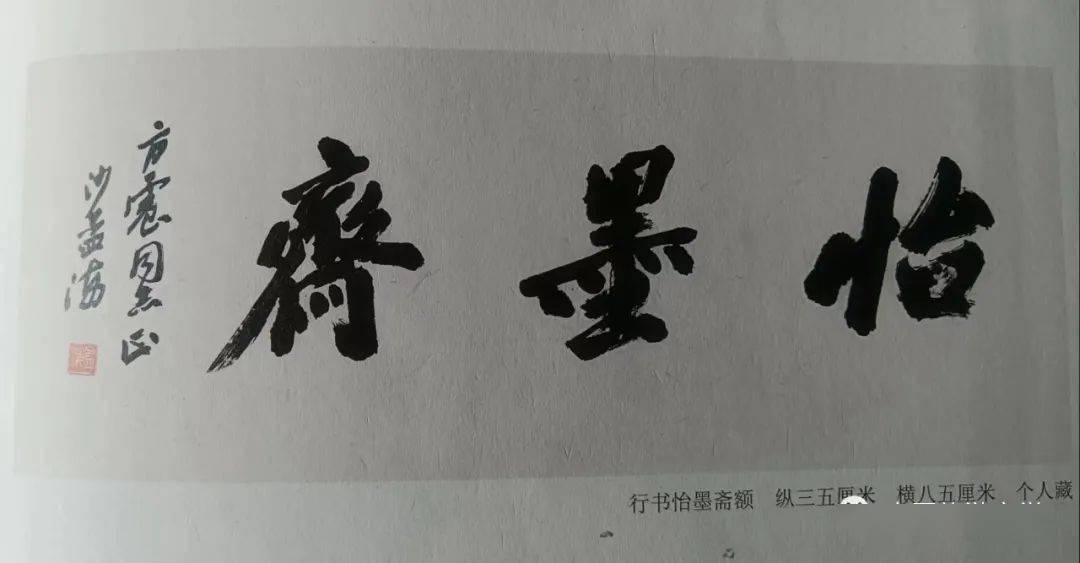 怡墨齋
方震同志正
沙孟海
行书怡墨斋额 纵三五厘米 横八五厘米 个人藏